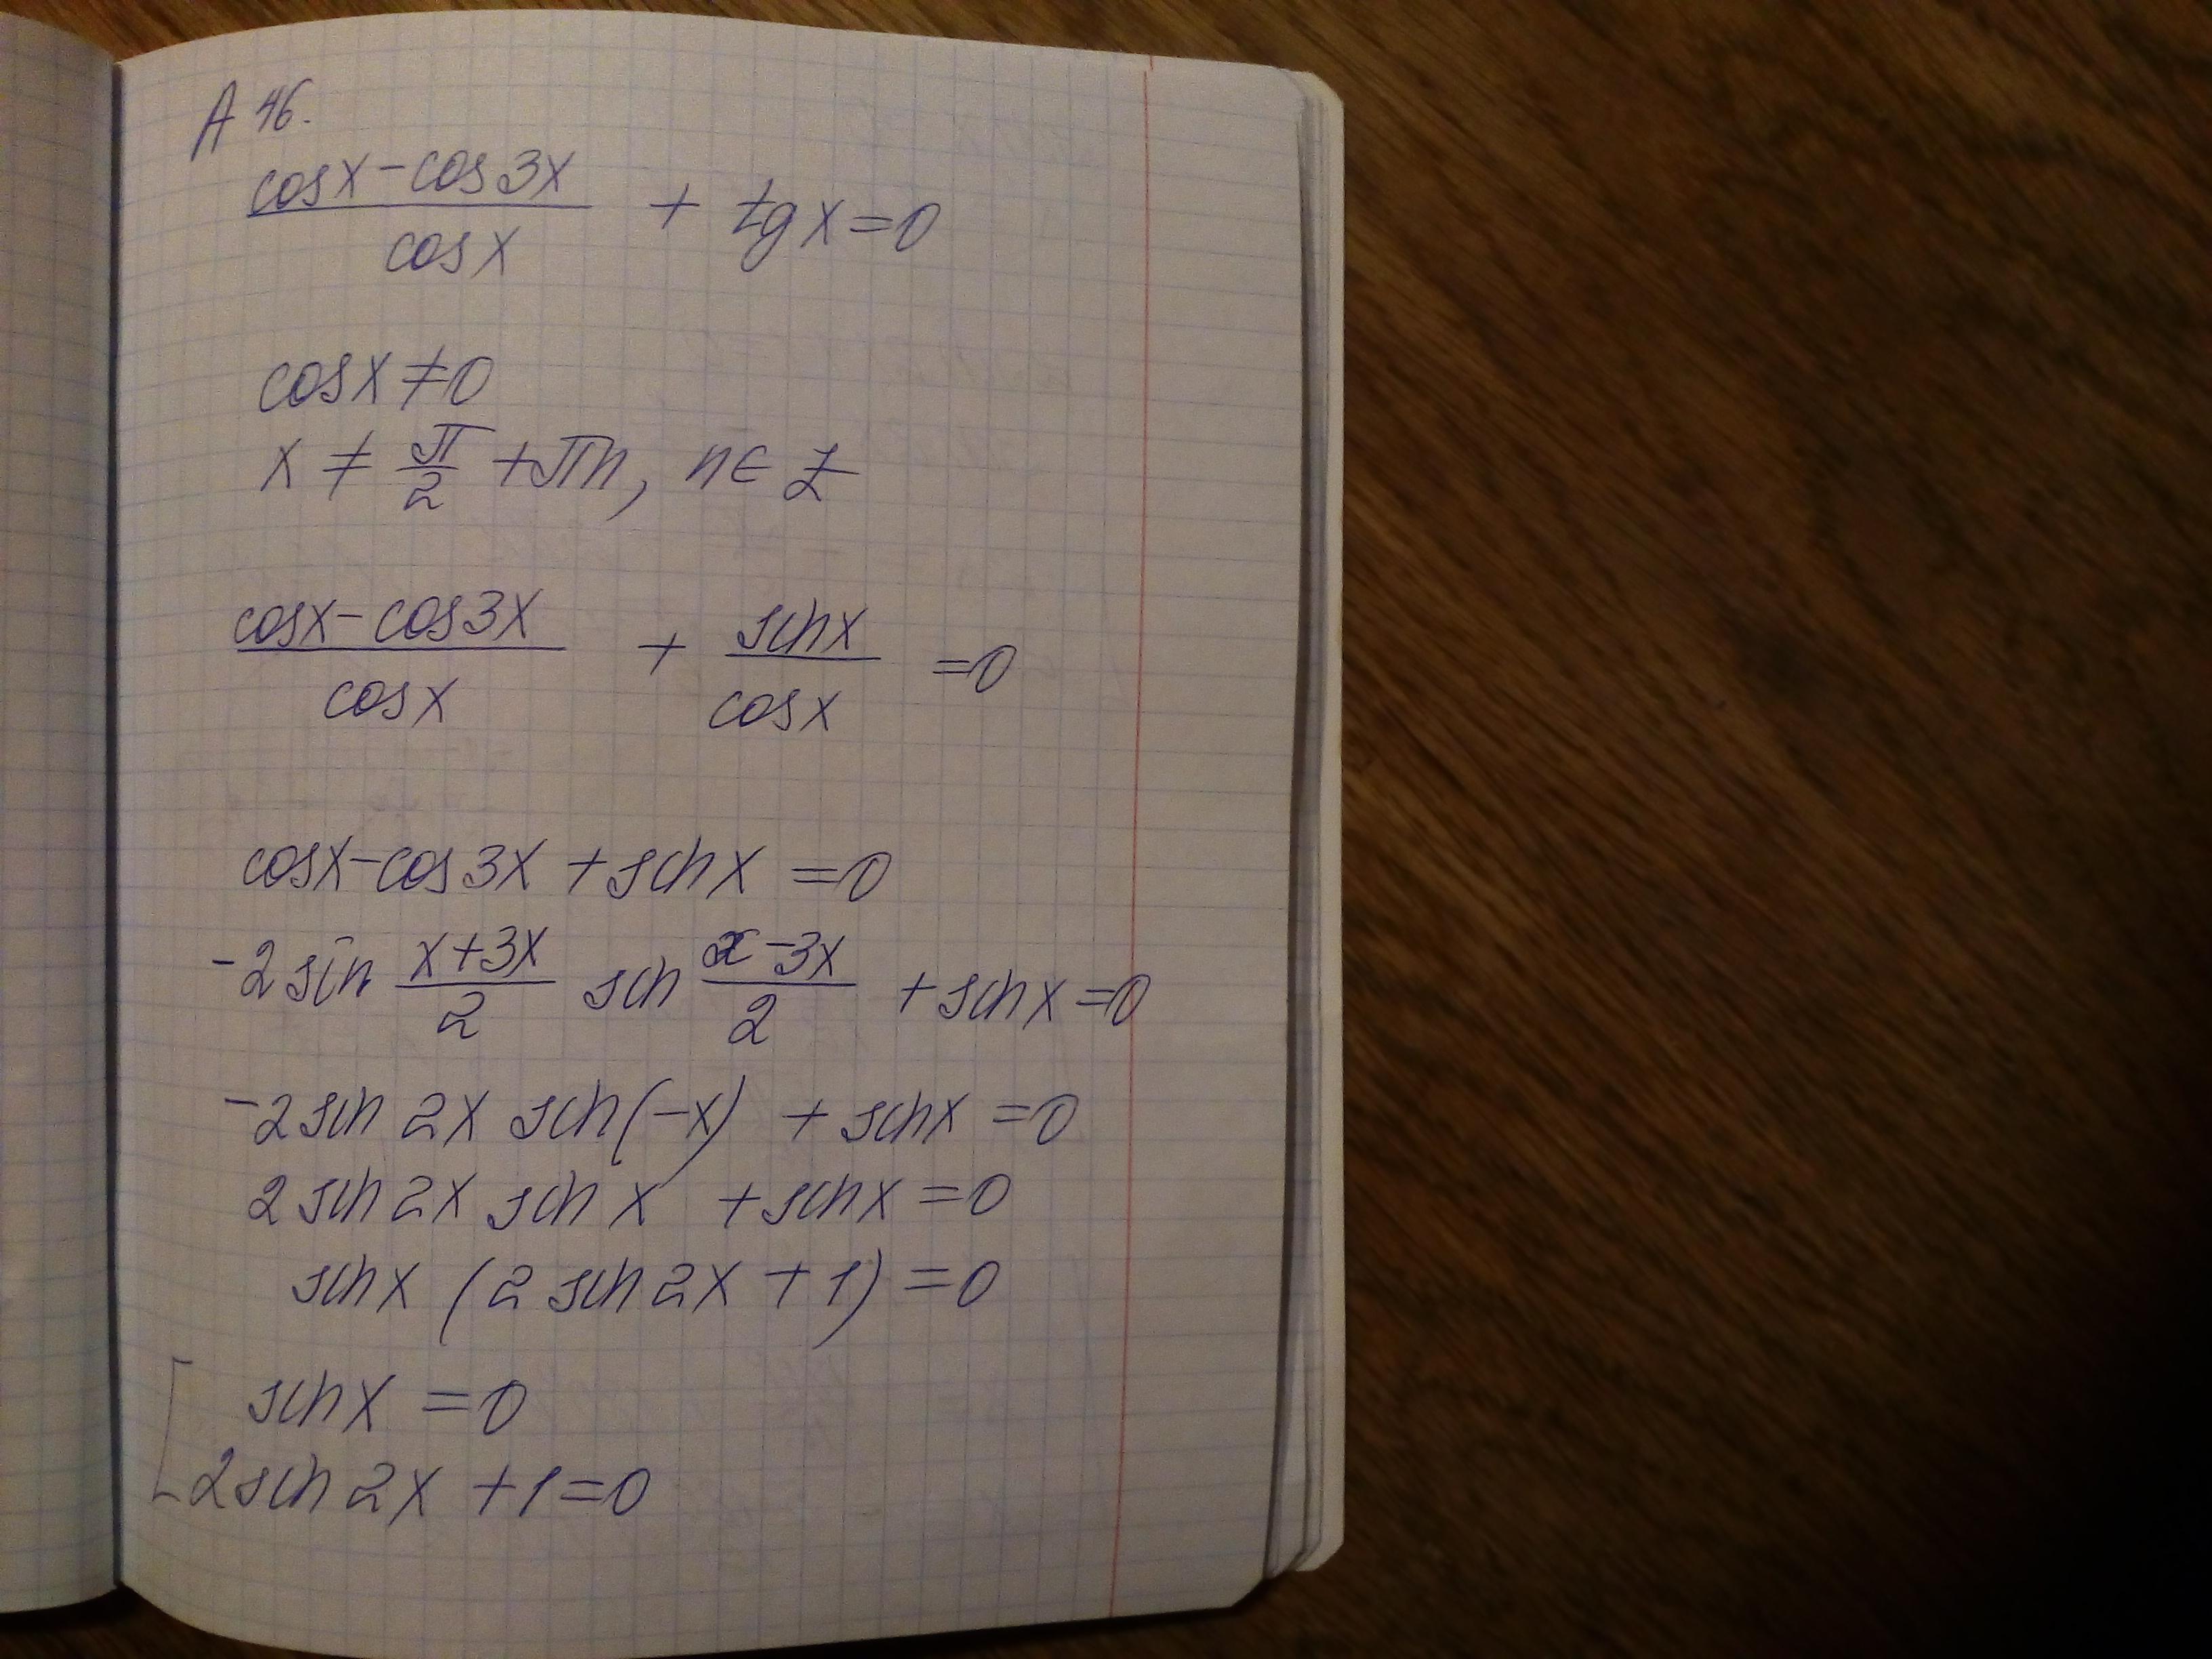 A 46.
(cosx - cos3x)/cosx + tgx = 0
cosx ≠ 0
x ≠ π/2 + πn, n ∈ Z
(cosx - cos3x)/cosx + sinx/cosx = 0
cosx - cos3x + sinx = 0
-2 sin (x+3x)/2 sin (x-3x)/2 + sinx = 0
-2 sin 2x sin(-x) + sinx = 0
2 sin 2x sin x + sinx = 0
sinx (2 sin 2x + 1) = 0
[ sinx = 0
2 sin 2x + 1 = 0